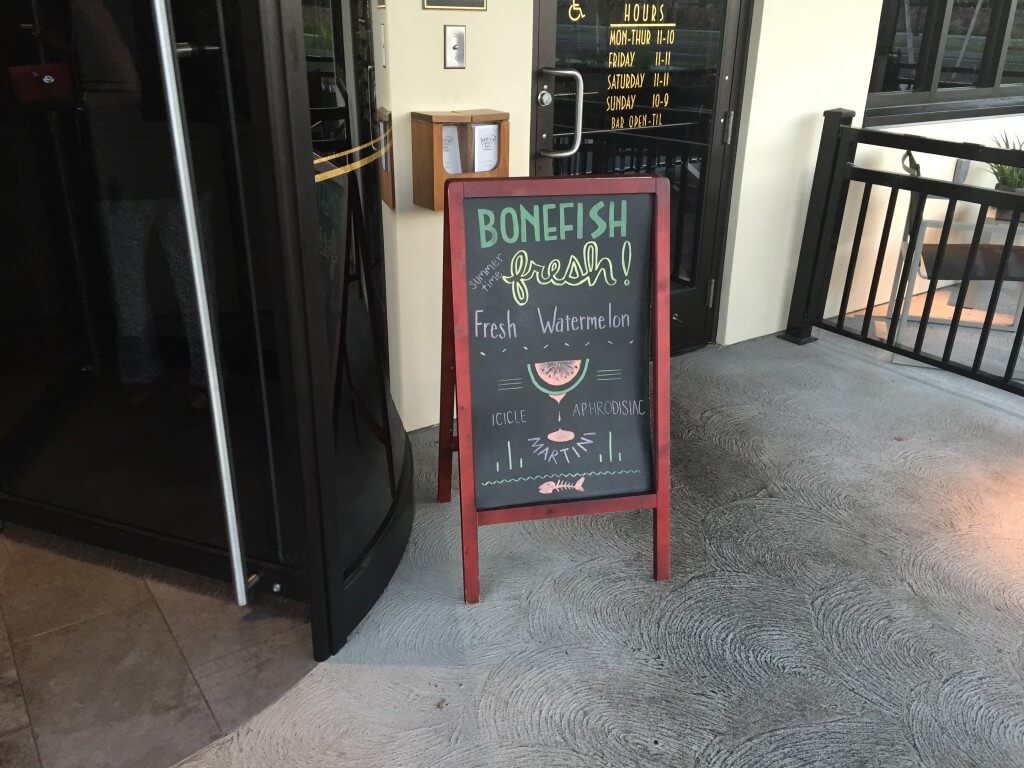 HOURS
MON-THUR 11-10
FRIDAY 11-11
SATURDAY 11-11
SUNDAY 10-9
BAR OPEN-TIL
BONEFISH
summer
time
fresh!
Fresh Watermelon
ICICLE APHRODISIAC
MARTINI